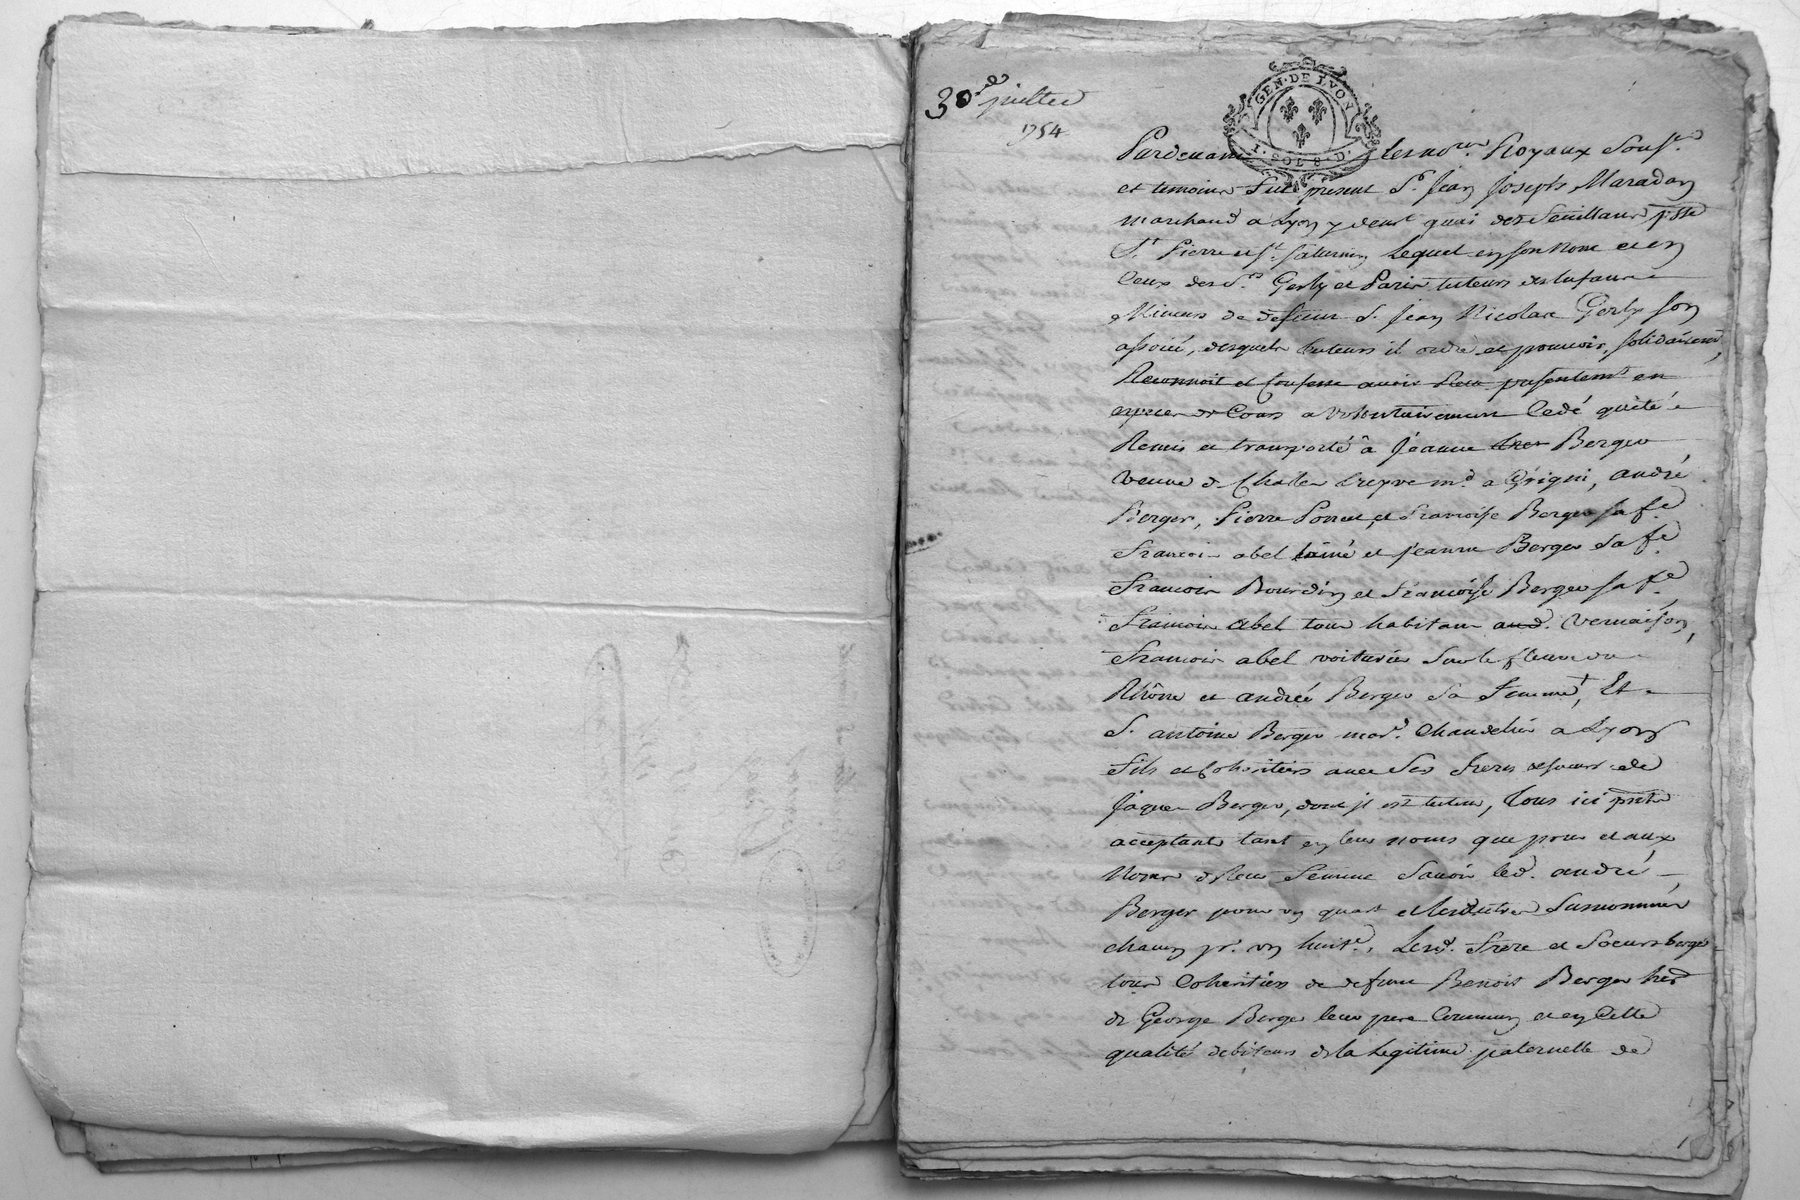 30e juillet
1754
GEN. DE LYON
1. SOL 8. D.
Pardevant les nores. Royaux Souss.
et temoins fut present Sr. Jean Joseph Maradan
marchand a Lyon y demt quai des Seuillans psse
St. Pierre et St. Saturnin Lequel en son Nom et en
Ceux des Srs. Gerly et Paris tuteurs des Enfans
Mineurs de deffunt S. Jean Nicolas Gerly son
associé, desquels tuteurs il ordre et pouvoir, solidairemt,
Reconnoit et Confesse avoir Receu presentemt en
especes de Cours a volontairement Cedé quité
Remis et transporté â Jéanne Berger
veuve de Charles md a Grigni, andré
Berger, Pierre et francoise Berger sa fe
francois abel lainé et jeanne Berger sa fe
francois Bourdin et francoise Berger sa fe,
francois abel tous habitans aud. Vernaison,
francois abel voiturier sur le fleuve du
Rhône et andrée Berger sa femme, Et
S. antoine Berger mard. Chandelier a Lyon
fils et Cohéritiers avec ses freres et soeurs de
Jaques Berger, dont il est tuteur, tous ici pnts
acceptants tant en leurs noms que pour et aux
Noms de leurs femmes Savoir led. andré
Berger pour un quart et les autres Surnommés
chacun pr. un huite., Lesd. frere et Soeurs berger
tous Coheritiers de defunt Benoit Berger her
de George Berger leur pere Commun et en Cette
qualité debiteurs de la Legitime paternelle de